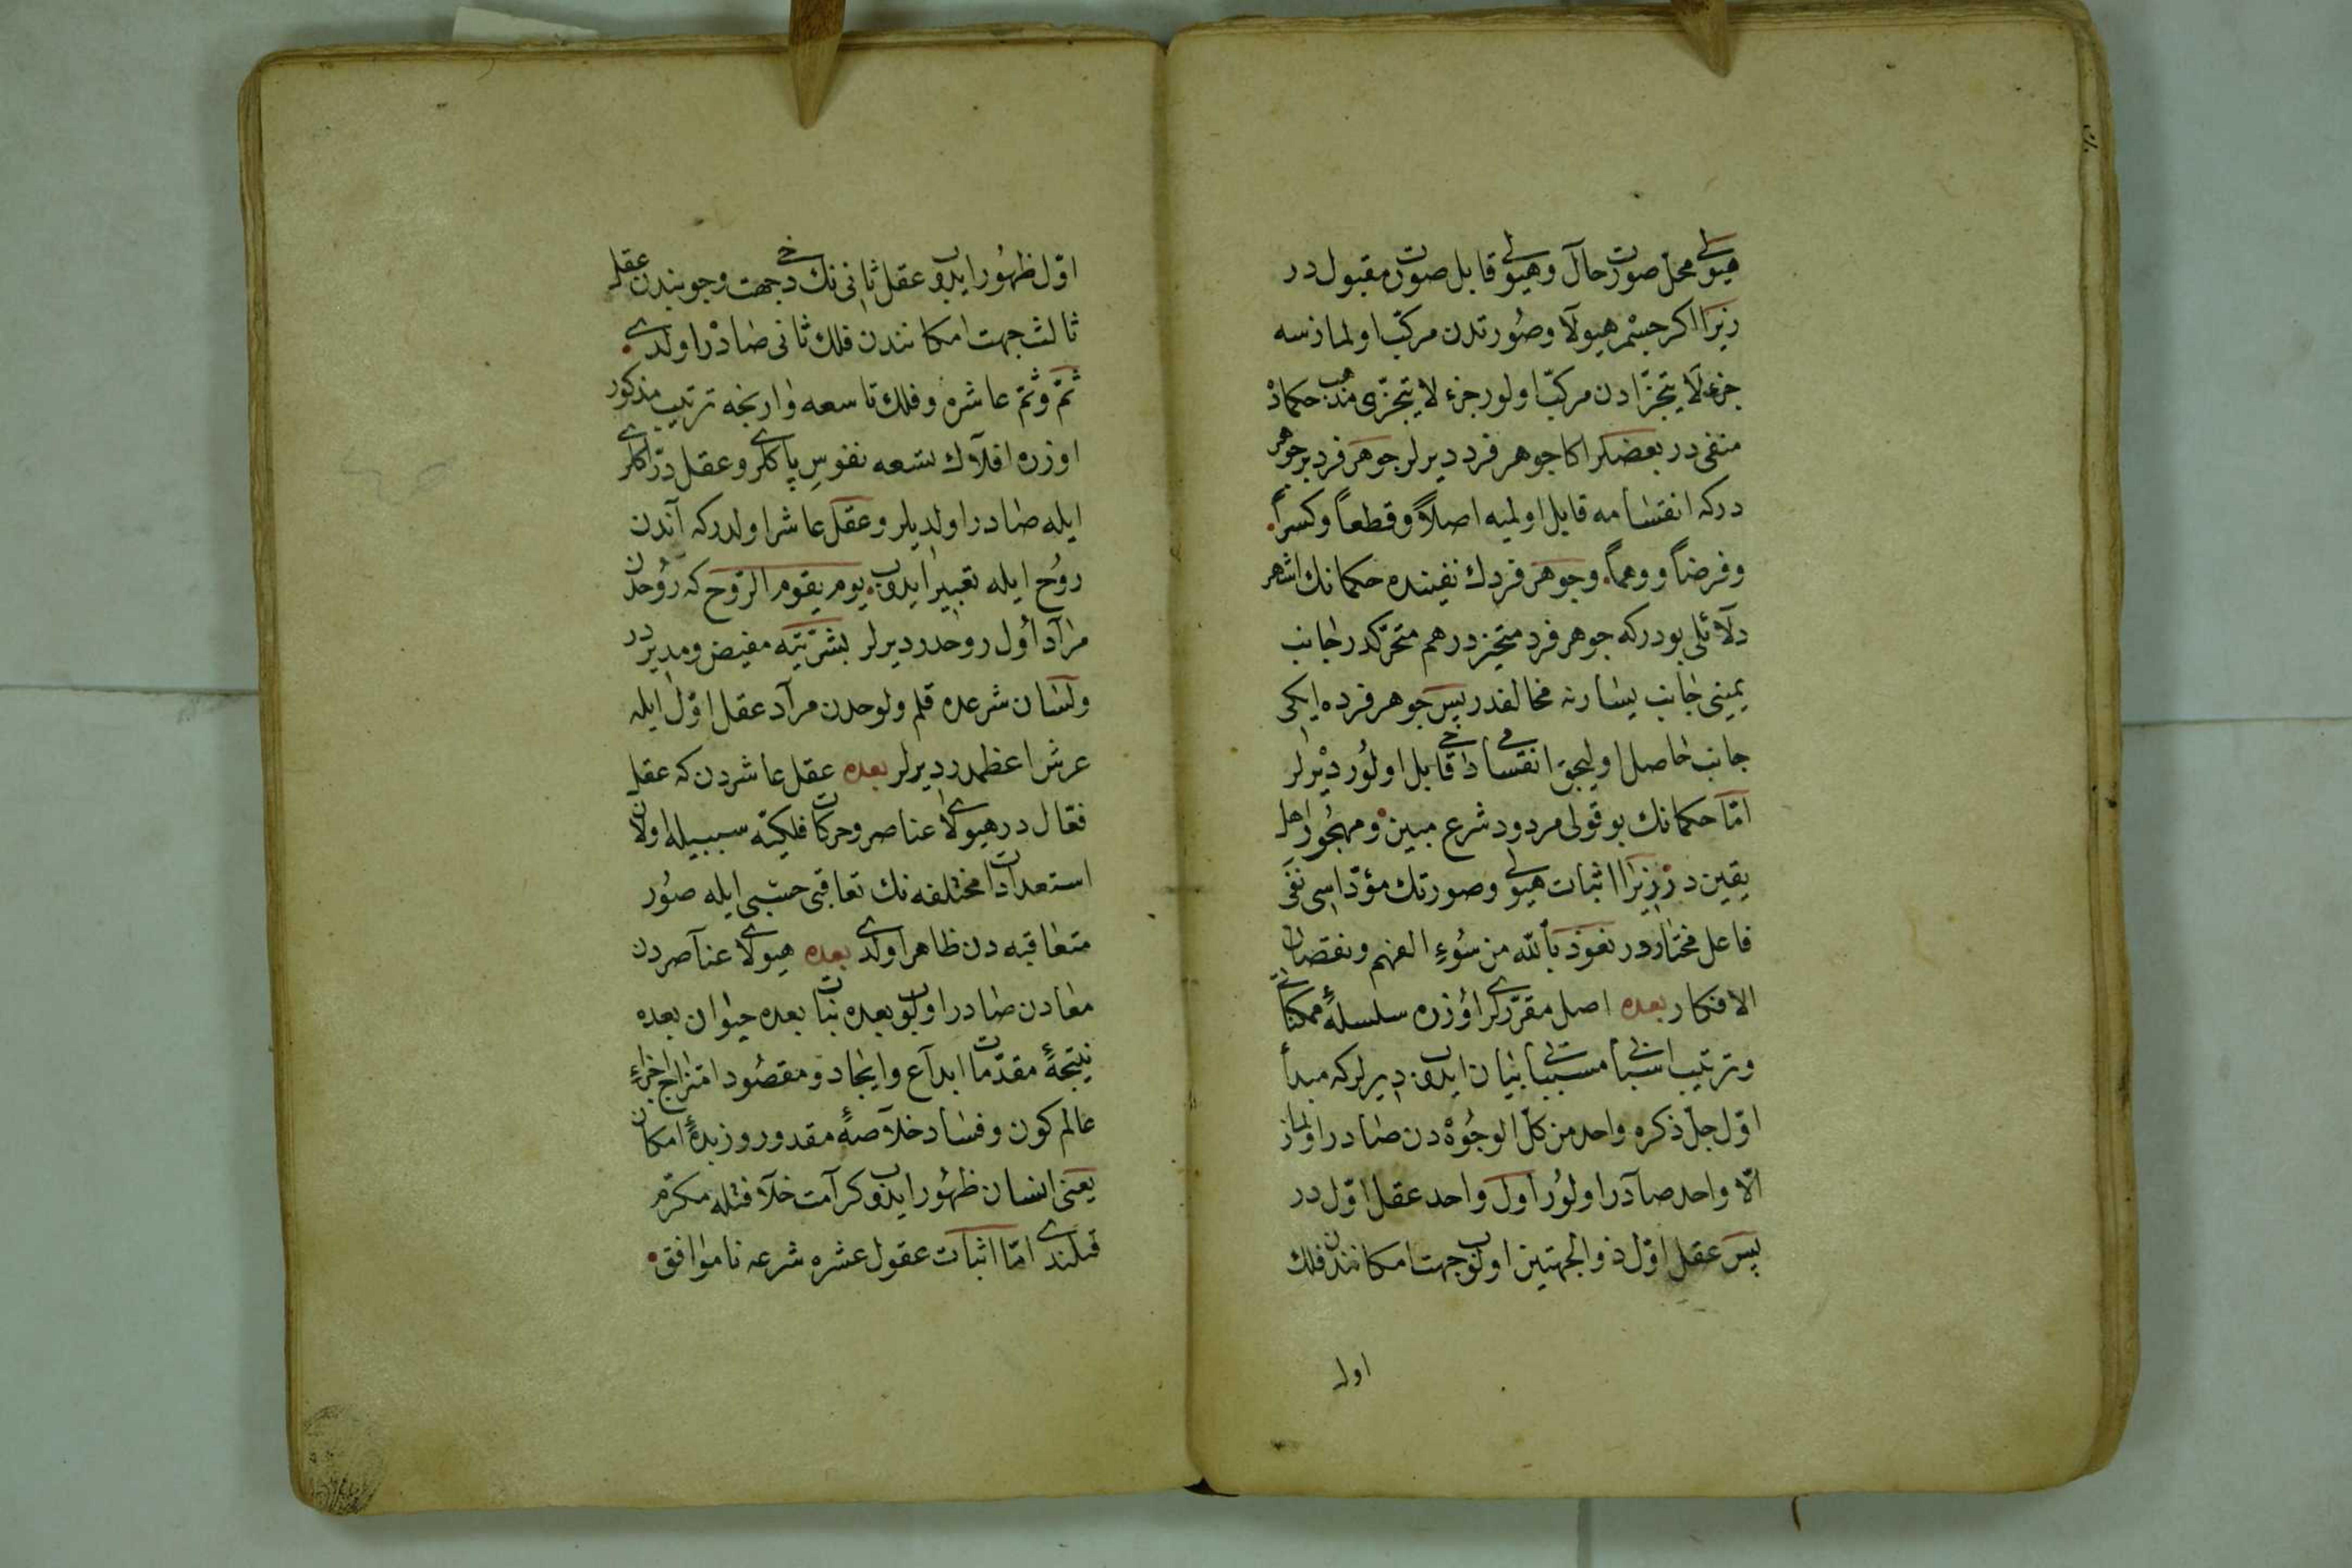 هیولی محل صورت حال و هیولی قابل صورت مقبول در
زیرا اکر جسم هیولا و صورتدن مرکب اولمازسه
جزء لا یتجزّادن مرکّب اولور جزء لا یتجزّی مذهب حکماده
منفی در بعضلر اکا جوهر فرد دیرلر جوهر فرد بر جوهر
درکه انقسامه قابل اولمیه اصلاً و قطعاً و کسراً
و فرضاً و وهماً و جوهر فردك نفینده حکمانك اشهر
دلآئلی بودرکه جوهر فرد متحیزدر هم متحرّکدر جانب
یمینی جانب یسارنه مخالفدر پس جوهر فرده ایکی
جانب حاصل اولیجق انقسام داخی قابل اولور دیرلر
امّا حکمانك بو قولی مردود شرع مبین و مهجور اهل
یقین در زیرا اثبات هیولی و صورتك مؤدّاسی نفی
فاعل مختاردر نعوذ بالله من سوء الفهم و نقصان
الافکار بعده اصل مقرّرلری اوزره سلسلهٔ ممکناتی
و ترتیب اسبابی مسبباتی بیان ایدوب دیرلرکه مبدأ
اوّل جلّ ذکره واحد من کلّ الوجوه دن صادر اولماز
الّا واحد صآدر اولور اول واحد عقل اوّل در
پس عقل اوّل ذو الجهتین اولوب جهت امکانندن فلك
اول
اوّل ظهور ایدوب عقل ثانی نك دخی جهت وجوبندن عقل
ثالث جهت امکانندن فلك ثانی صادر اولدی
ثمّ و ثمّ عاشره و فلك تاسعه وارنجه ترتیب مذکور
اوزره افلاك تسعه نفوس پاکلری و عقل درّاکلری
ایله صادر اولدیلر و عقل عاشر اولدرکه آندن
روح ایله تعبیر ایدوب یوم یقوم الرّوح که روحدن
مرآد اول روحدر دیرلر بشریّته مفیض و مدبر در
و لسان شرعده قلم و لوحدن مرآد عقل اوّل ایله
عرش اعظمدر دیرلر بعده عقل عاشردن که عقل
فعّال در هیولای عناصر و حرکات فلکیّه سببیله اولان
استعدادات مختلفه نك تعاقبی حسبی ایله صور
متعاقبه دن ظاهر اولدی بعده هیولای عناصردن
معادن صادر اولوب بعده نبات بعده حیوان بعده
نتیجهٔ مقدّمات ابدآع و ایجاد و مقصود امتزاج اجزاء
عالم کون و فساد خلاصهٔ مقدور و زبدهٔ امکان
یعنی انسان ظهور ایدوب کرآمت خلافتله مکرّم
قیلندی امّا اثبات عقول عشره شرعه ناموافق